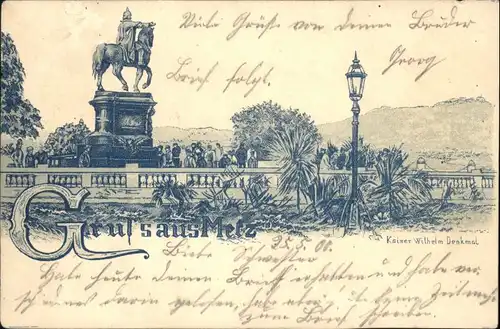 Viele Grüße von deinem Bruder
Georg
Brief folgt.
Gruss aus Metz
Kaiser Wilhelm Denkmal
25.5.00.
Liebe Schwester
Habe heute deinen Brief erhalten und habe
schönes darin gelesen, habe aber keine Zeit mehr
zum Brief schreiben.